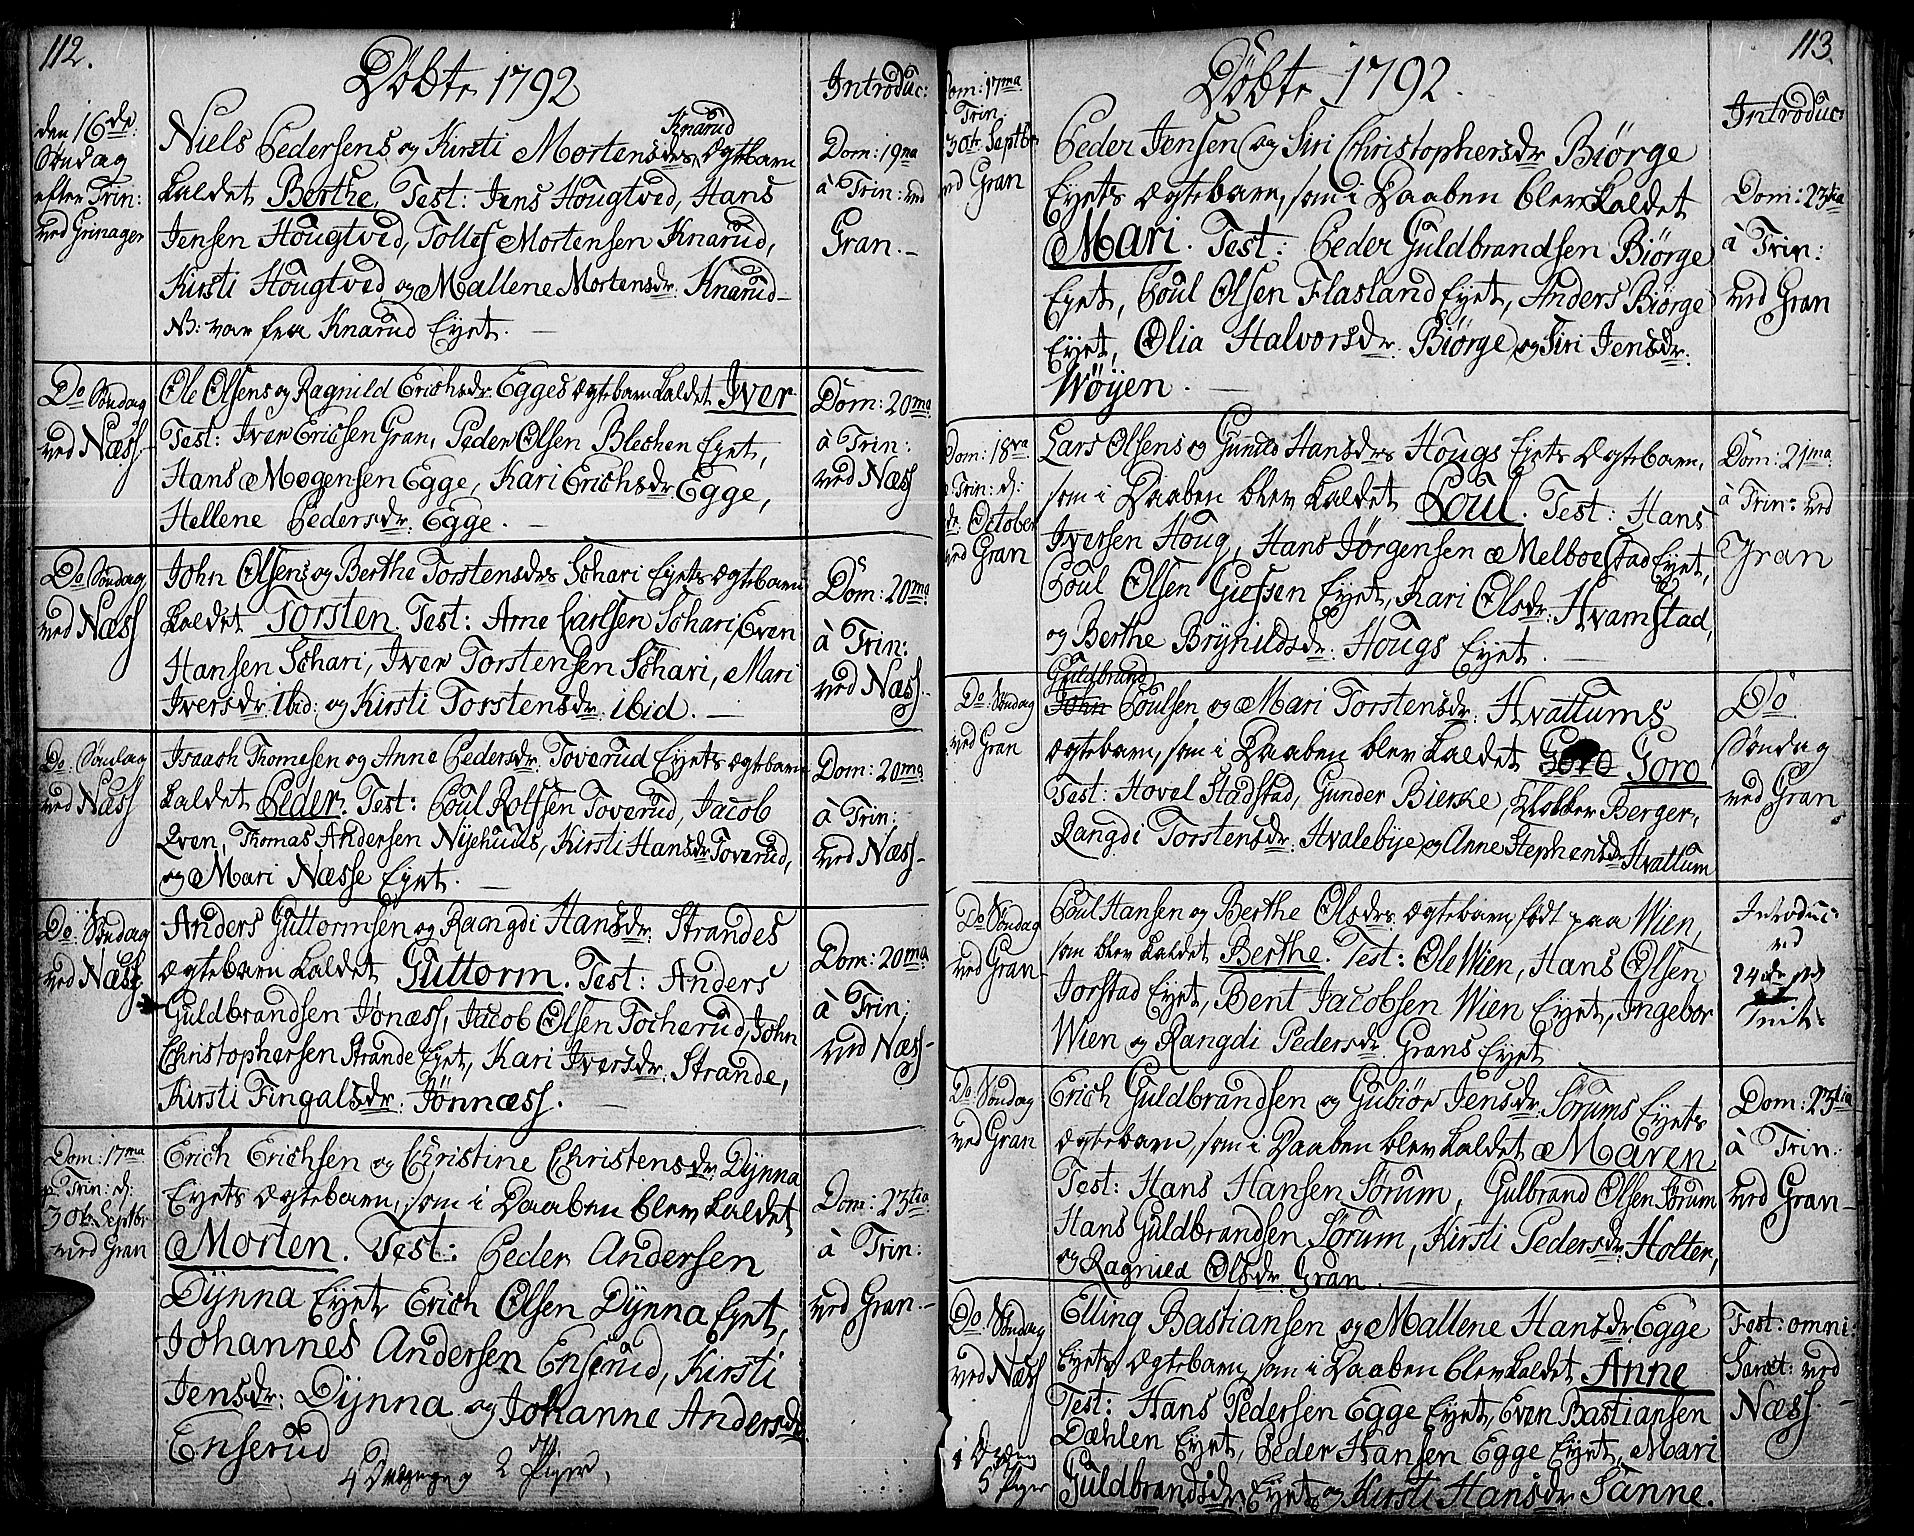 112.
Døbte 1792
Introduc:
den 16de
Søndag
efter Trin:
ved Grinager
Knarud
Niels Pedersens og Kirsti Mortensdrs Ægtebarn
kaldet Berthe, Test: Jens Hougtved, Hans
Jensen Hougtvid, Tollef Mortensen Knarud,
Kirsti Hougtved og Mallene Mortensdr. Knarud-
NB: var fra Knarud Eyet.
Dom: 19na
à Trin: ved
Gran.-
Do Søndag
ved Næss
Ole Olsens og Ragnild Erichsdr Egges Ægtebarn kaldet Iver
Test: Iver Ericsen Gran, Peder Olsen Blechen Eyet,
Hans Mogensen Egge, Kari Erichsdr Egge,
Hellene Pedersdr. Egge.
Dom: 20ma
à Trin:
ved Næss
Do Søndag
ved Næss
John Olsens og Berthe Torstensdrs Schari Eyets Ægtebarn
kaldet Torsten. Test: Arne Carlsen Schari, Even
Hansen Schari, Iver Torstensen Schari, Mari
Iversdr. ibid: og Kirsti Torstensdr. ibid.
Dom: 20ma
à Trin:
ved Næss.
Do. Søndag
ved Næss
Isaach Thomesen og Anne Pedersdr. Toverud Eyets Ægtebarn
kaldet Peder. Test: Poul Rolfsen Toverud, Jacob
Qven, Thomas Andersen Nysehuus, Kirsti Hansdr Toverud,
og Mari Næsse Eyet.
Dom: 20ma
à Trin:
ved Næss-
Do. Søndag
ved Næss
Anders Guttormsen og Raangdi Hansdr. Strandes
Ægtebarn kaldet Guttorm. Test: Anders
Guldbrandsen Jønæss, Jacob Olsen Tocherud, John
Christophersen Strande Eyet, Kari Iversdr. Strande,
Kirsti Fingalsdr. Jønnæss.
Dom: 20ma
à Trin;
ved Næss-
Dom: 17ma
p Trin: d:
30te Septbr
ved Gran
Erich Erichsen og Christine Christensdr. Dynna
Eyets Ægtebarn, som i Daaben blev kaldet
Morten. Test: Peder Andersen
Dynna Eyet, Erich Olsen Dynna Eyet,
Johannes Andersen Enserud, Kirsti
Jensdr: Dynna og Johanne Andersdr.
Enserud
Dom: 23tia
à Trin:
ved Gran.-
4 Drenge og 2 Piger,
113.
Døbte 1792.
Introduc:
Dom: 17ma
Trin:
30te Septbr
ved Gran
Peder Jensen og Siri Christophersdr Biørge
Eyets Ægtebarn, som i Daaben blev kaldet
Mari. Test: Peder Guldbrandsen Biørge
Eyet, Poul Olsen Flasland Eyet, Anders Biørge
Eyet, Olia Halvorsdr. Biørge og Siri Jensdr.
Wøyen.
Dom: 23tia
à Trin:
ved Gran
Dom: 18va
Trin: d:
October
ved Gran
Lars Olsens og Gunild Hansdrs Hougs Eyets Ægtebarn,
som i Daaben blev kaldet Poul. Test: Hans
Iversen Houg, Hans Jørgensen Melboestad Eyet,
Poul Olsen Giefsen Eyet, Kari Olsdr. Hvamstad,
og Berthe Brynildsdr. Hougs Eyet.
Dom: 21ma
à Trin: ved
Gran
Do. Søndag
ved Gran
Guldbrand
John Poulsen og Mari Torstensdr. Hvattums
Ægtebarn, som i Daaben blev kaldet Goro Goro
Test: Hovel Stadstad, Gunder Bierke, Klokker Berger,
Rangdi Torstensdr. Hvalebye og Anne Stephensdr. Hvattum
Do
Søndag
ved Gran
Do Søndag
ved Gran
Poul Hansen og Berthe Olsdrs Ægtebarn, født paa Wien,
som blev kaldet Berthe. Test: Ole Wien, Hans Olsen
Jorstad Eyet, Bent Jacobsen Wien Eyet, Ingebor
Wien og Rangdi Pedersdr. Grans Eyet
Introduc:
ved
24de
Trinit:
Do Søndag
ved Gran
Erich Guldbrandsen og Gubiør Jensdr. Sørums Eyets
Ægtebarn, som i Daaben blev kaldet Maren
Test: Hans Hansen Sørum, Gulbrand Olsen Sørum
Hans Guldbrandsen Sørum, Kirsti Pedersdr. Holter,
og Ragnild Olsdr. Gran.
Dom: 23tia
à Trin:
ved Gran-
Do: Søndag
ved Næss
Elling Bastiansen og Mallene Hansdr. Egge
Eyets Ægtebarn, som i Daaben blev kaldet Anne
Test: Hans Pedersen Egge Eyet, Even Bastiansen
Dæhlen Eyet, Peder Hansen Egge Eyet, Mari
Guldbrandsdr. Eyet og Kirsti Hansdr. Sanne.
Fest: omni:
Sanct: ved
Næss.
1 Dreng
5 Piger